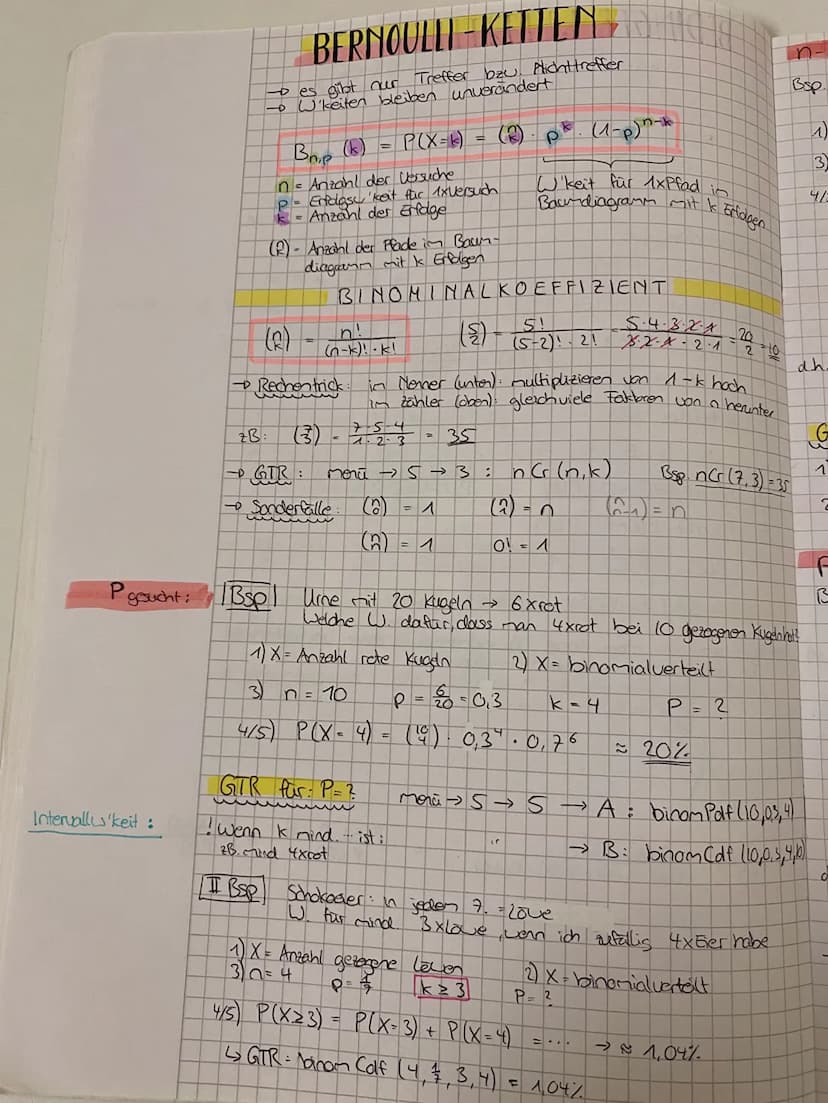 BERNOULLI-KETTEN
→ es gibt nur Treffer bzw. Nichttreffer
→ W'keiten bleiben unverändert
B n,p (k) = P(X=k) = (n k) · p^k · (1-p)^n-k
n = Anzahl der Versuche
p = Erfolgsw'keit für 1xVersuch
k = Anzahl der Erfolge
W'keit für 1xPfad in
Baumdiagramm mit k Erfolgen
(n k) - Anzahl der Pfade im Baum-
diagramm mit k Erfolgen
BINOMINALKOEFFIZIENT
(n k) = n! / (n-k)! · k!
(5 2) = 5! / (5-2)! · 2! = 5·4·3·2·1 / 3·2·1 · 2·1 = 20/2 = 10
→ Rechentrick: im Nenner (unten): multiplizieren von 1-k hoch
im Zähler (oben): gleichviele Faktoren von n herunter
zB: (7 3) = 7·5·4 / 1·2·3 = 35
→ GTR: menü → 5 → 3 : nCr (n,k) Bsp. nCr (7,3) = 35
→ Sonderfälle: (n 0) = 1 (n 1) = n (n n-1) = n
(n n) = 1 0! = 1
P gesucht:
Bsp Urne mit 20 Kugeln → 6xrot
Welche W. dafür, dass man 4xrot bei 10 gezogenen Kugeln holt
1) X = Anzahl rote Kugeln 2) X = binomialverteilt
3) n = 10 p = 6/20 = 0,3 k = 4 P = ?
4/5) P(X = 4) = (10 4) · 0,3^4 · 0,7^6 ≈ 20%
GTR für: P=? menü → 5 → 5 → A : binomPdf (10,0.3,4)
Intervallw'keit :
! wenn k mind. - ist: " → B: binomCdf (10,0.3,4,10)
zB. mind 4xrot
II Bsp Schokoeier: in jedem 7. = Löwe
W. für mind 3xLöwe, wenn ich zufällig 4xEier habe
1) X = Anzahl gezogene Löwen 2) X = binomialverteilt
3) n = 4 p = 1/7 k ≥ 3 P = ?
4/5) P(X≥3) = P(X=3) + P(X=4) = ... → ≈ 1,04%
↳ GTR = binom Cdf (4, 1/7, 3, 4) = 1,04%
n-
Bsp.
1)
3)
4/
d.h.
G
1